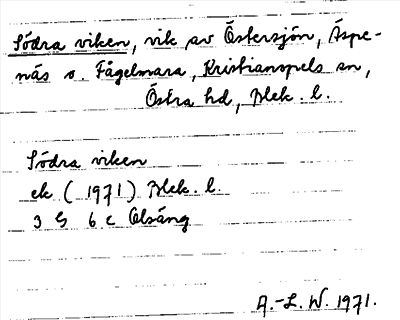 Södra viken, vik av Östersjön, Äspe-
näs o. Fågelmara, Kristianopels sn,
Östra hd, Blek. l.
Södra viken
ek (1971) Blek. l.
3 G 6 c Olsäng
A.-L. W. 1971.